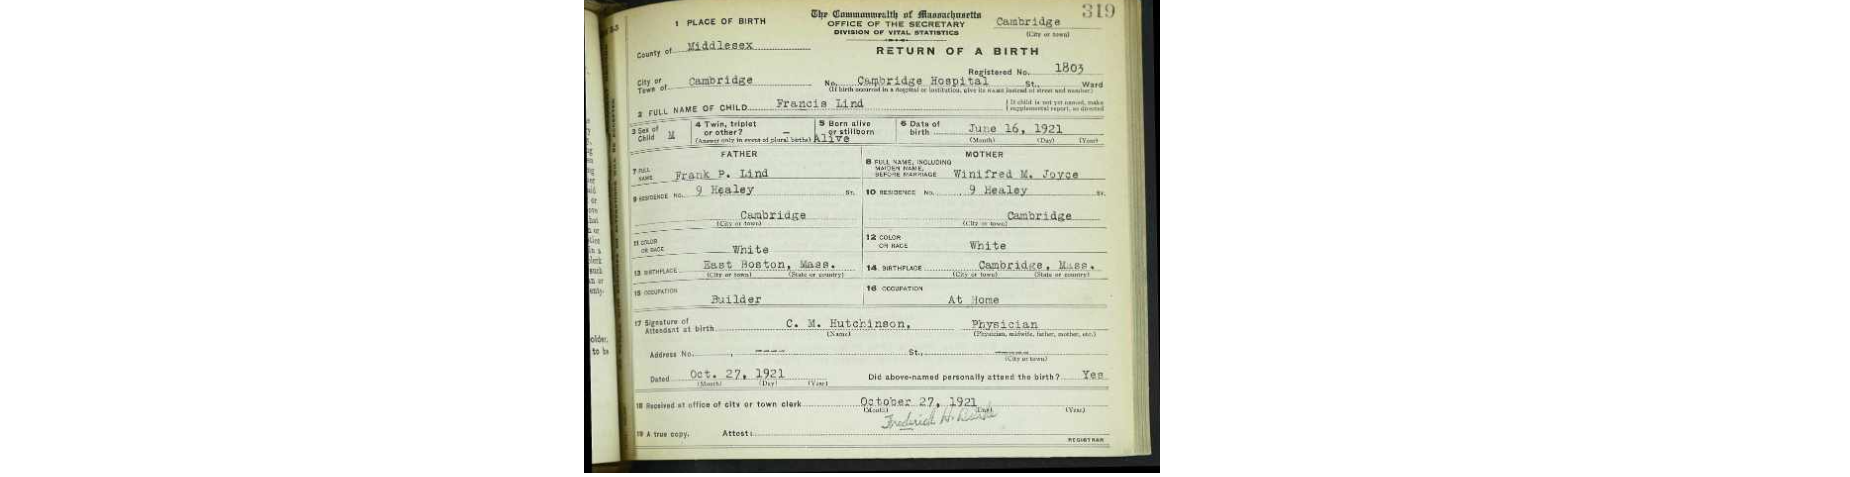 319
The Commonwealth of Massachusetts
OFFICE OF THE SECRETARY
DIVISION OF VITAL STATISTICS
Cambridge
(City or town)
1 PLACE OF BIRTH
County of Middlesex
RETURN OF A BIRTH
Registered No. 1803
City or Town of Cambridge No. Cambridge Hospital St., Ward
(If birth occurred in a hospital or institution, give its name instead of street and number)
2 FULL NAME OF CHILD Francis Lind
If child is not yet named, make supplemental report, as directed
3 Sex of Child M
4 Twin, triplet or other? —
(Answer only in event of plural births)
5 Born alive or stillborn Alive
6 Date of birth June 16, 1921
(Month) (Day) (Year)
FATHER
MOTHER
7 FULL NAME Frank P. Lind
8 FULL NAME, INCLUDING MAIDEN NAME, BEFORE MARRIAGE Winifred M. Joyce
9 RESIDENCE No. 9 Healey St.
10 RESIDENCE No. 9 Healey St.
Cambridge
(City or town)
Cambridge
(City or town)
11 COLOR OR RACE White
12 COLOR OR RACE White
13 BIRTHPLACE East Boston, Mass.
(City or town) (State or country)
14 BIRTHPLACE Cambridge, Mass.
(City or town) (State or country)
15 OCCUPATION Builder
16 OCCUPATION At Home
17 Signature of Attendant at birth C. M. Hutchinson, Physician
(Name) (Physician, midwife, father, mother, etc.)
Address No. , ---- St., ----
(City or town)
Dated Oct. 27, 1921
(Month) (Day) (Year)
Did above-named personally attend the birth? Yes
18 Received at office of city or town clerk October 27, 1921
(Month) (Day) (Year)
Frederick H.
19 A true copy. Attest:
REGISTRAR
older.
to be